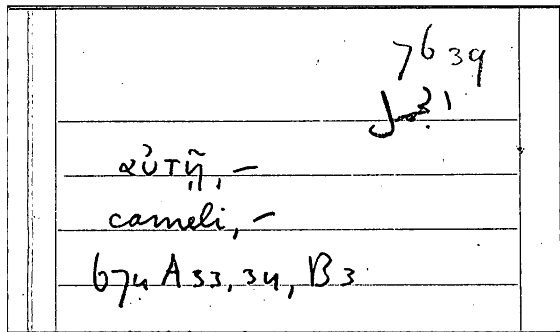 7639
αὐτῇ, –
cameli, –
674 A 33, 34, B 3